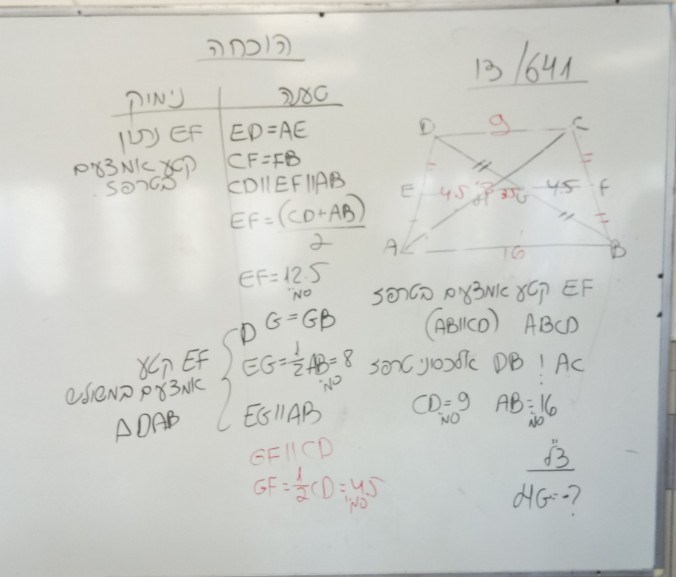 הוכחה
13/641
נימוק טענה
EF נתון ED=AE
קטע אמצעים CF=FB
בטרפז CD||EF||AB
EF=(CD+AB)
2
EF=12.5
ס"מ
DG=GB
EF קטע EG=½AB=8
ס"מ
אמצעים במשולש
ΔDAB EG||AB
GF||CD
GF=½CD=4.5
ס"מ
D 9 C
E 4.5 3.5 4.5 F
A 16 B
EF קטע אמצעים בטרפז
ABCD (AB||CD)
AC ו DB אלכסוני טרפז
AB=16 CD=9
ס"מ ס"מ
צ"ל
HG=?